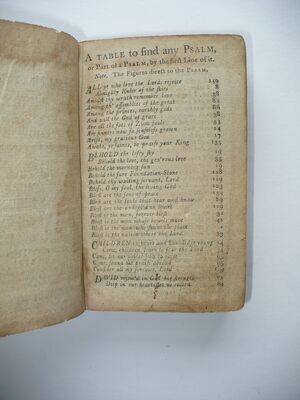 A TABLE to find any PSALM,
or Part of a PSALM, by the first Line of it.
Note. The Figures direct to the PSALM,
ALL ye who love the Lord, rejoice 149
Almighty Ruler of the skies 8
Amidst thy wrath remember love 38
Among th' assemblies of the great 82
Among the princes, earthly gods
And will the God of grace
Are all the foes of Zion fools 53
Are sinners now so senseless grown 14
Arise, my gracious God 17
Awake, ye saints, to praise your King 135
BEHOLD the lofty sky 19
Behold the love, the gen'rous love 35
Behold the morning sun 19
Behold the sure Foundation-Stone 118
Behold thy waiting servant, Lord 119
Bless, O my soul, the living God 103
Blest are the sons of peace 133
Blest are the souls that hear and know 89
Blest are the undefil'd in heart 119
Blest is the man, forever blest 32
Blest is the man whose bowels move 41
Blest is the man who shuns the place
Blest is the nation where the Lord
CHILDREN in years and knowledge young
Come, children, learn to fear the Lord
Come, let our voices join to raise 95
Come, sound his praise abroad 95
Consider all my sorrows, Lord
DAVID rejoic'd in God his strength 21
Deep in our hearts let us record 69